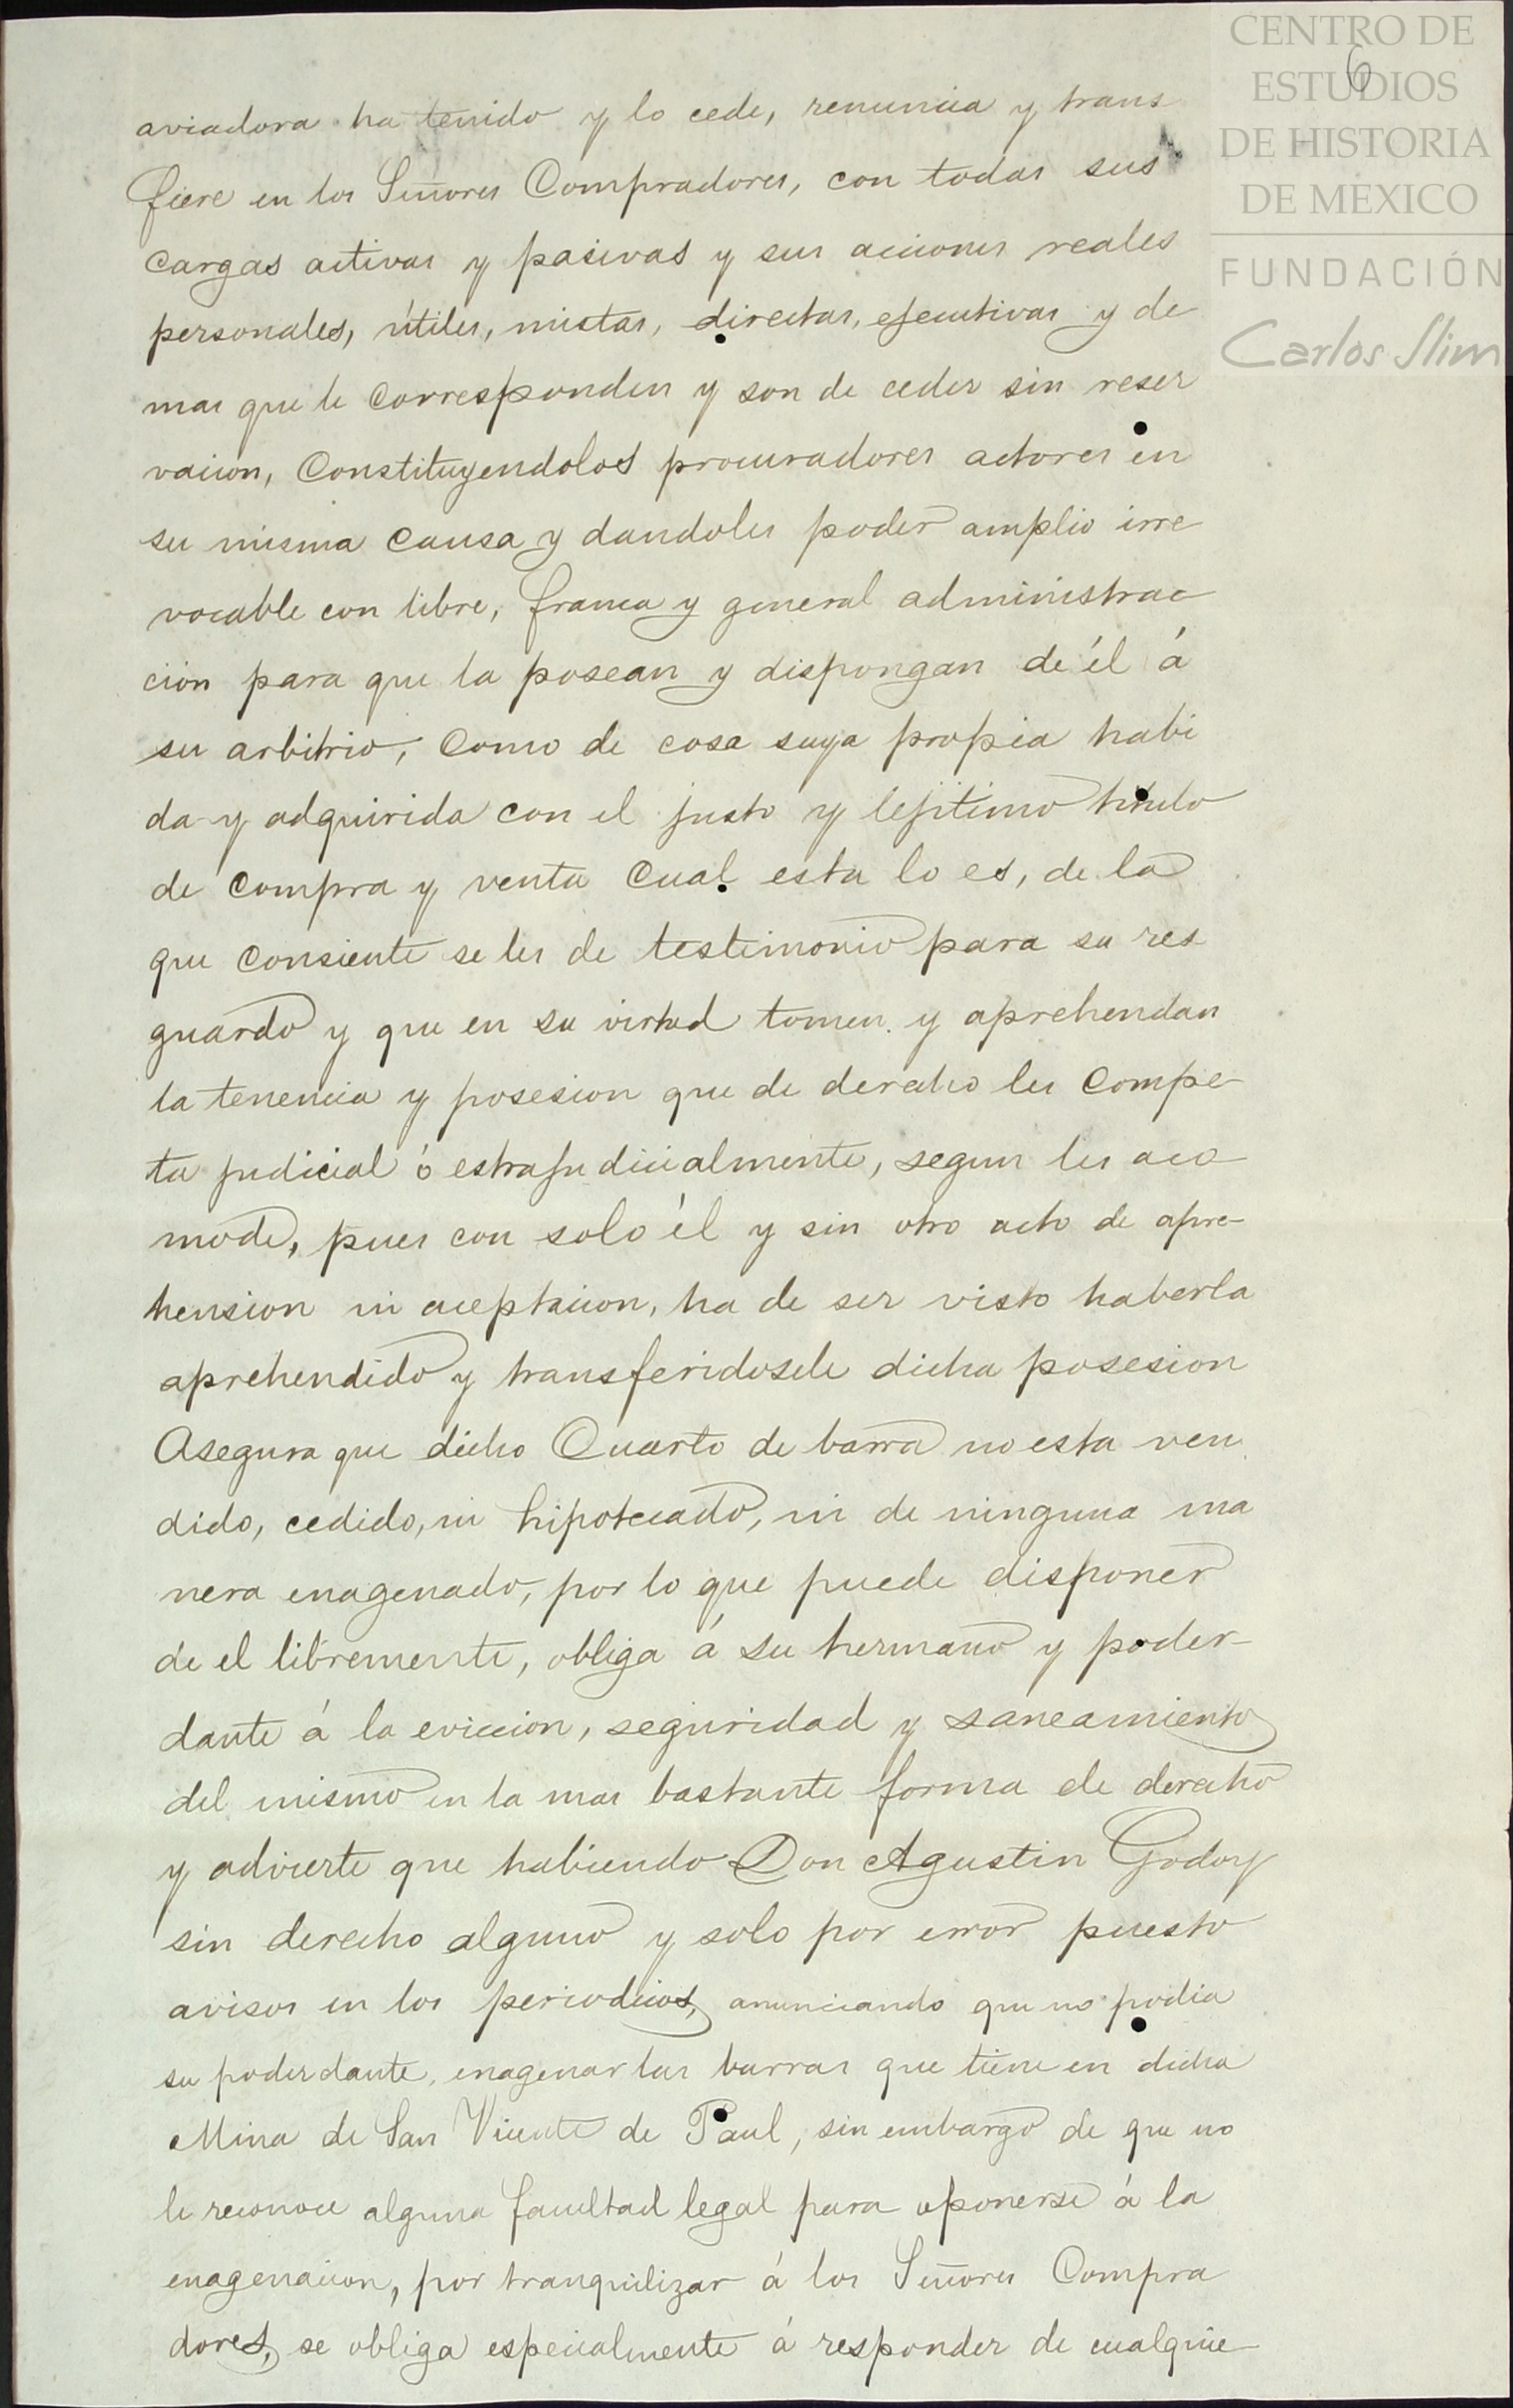 CENTRO DE
ESTUDIOS
DE HISTORIA
DE MÉXICO
FUNDACIÓN
Carlos Slim
6
aviadora ha tenido y lo cede, renuncia y trans
fiere en los Señores Compradores, con todas sus
cargas activas y pasivas y sus acciones reales
personales, útiles, mistas, directas, ejecutivas y de
mas que le corresponden y son de ceder sin reser
vacion, Constituyendolos procuradores actores en
su misma causa y dandoles poder amplio irre
vocable con libre, franca y general administrac
ción para que la posean y dispongan de él á
su arbitrio, como de cosa suya propia habi
da y adquirida con el justo y lejitimo titulo
de compra y venta cual esta lo es, de la
que consiente se les de testimonio para su res
guardo y que en su virtud tomen y aprehendan
la tenencia y posesion que de derecho les compe
ta judicial ó estrajudicialmente, segun les aco
mode, pues con solo él y sin otro acto de apre-
hension ni aceptacion, ha de ser visto haberla
aprehendido y transferidosele dicha posesion
Asegura que dicho Cuarto de barra no esta ven
dido, cedido, ni hipotecado, ni de ninguna ma
nera enagenado, por lo que puede disponer
de el libremente, obliga á su hermano y poder-
dante á la eviccion, seguridad y saneamiento
del mismo en la mas bastante forma de derecho
y advierte que habiendo Don Agustin Godoy
sin derecho alguno y solo por error puesto
avisos en los periodicos, anunciando que no podia
su poderdante, enagenar las barras que tiene en dicha
Mina de San Vicente de Paul, sin embargo de que no
le reconoce alguna facultad legal para oponerse á la
enagenacion, por tranquilizar á los Señores Compra
dores, se obliga especialmente á responder de cualquie